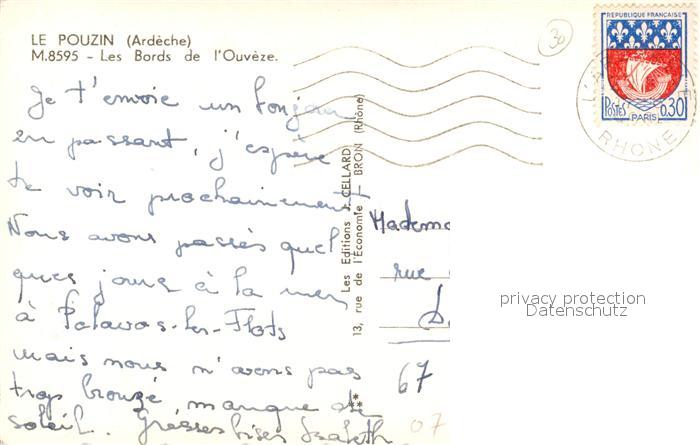 LE POUZIN (Ardèche)
M.8595 - Les Bords de l'Ouvèze.
30
REPUBLIQUE FRANÇAISE
POSTES 0,30
PARIS
RHONE
Je t'envoie un bonjour
en passant, j'espère
te voir prochainement
Nous avons passés quel
ques jours à la mer
à Palavas-les-Flots
mais nous n'avons pas
trop bronzé manque de
soleil. Grosses bises
Les Editions J. CELLARD
13, rue de l'Economie - BRON (Rhône)
Madem
rue
67
07
privacy protection
Datenschutz